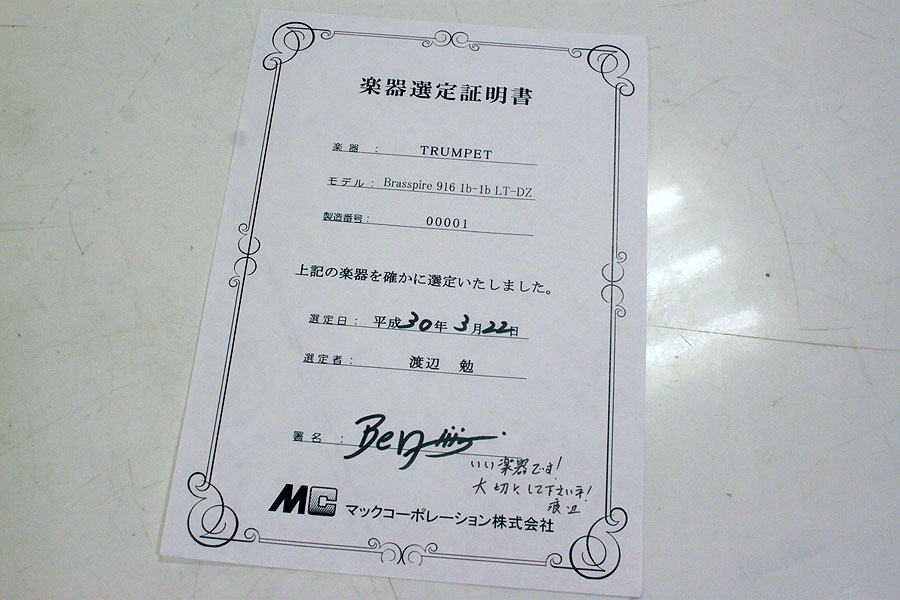 楽器選定証明書
楽器： TRUMPET
モデル： Brasspire 916 1b-1b LT-DZ
製造番号： 00001
上記の楽器を確かに選定いたしました。
選定日： 平成30年3月22日
選定者： 渡辺 勉
署名： Ben
いい楽器です!
大切にして下さいネ!
渡辺
MC マックコーポレーション株式会社